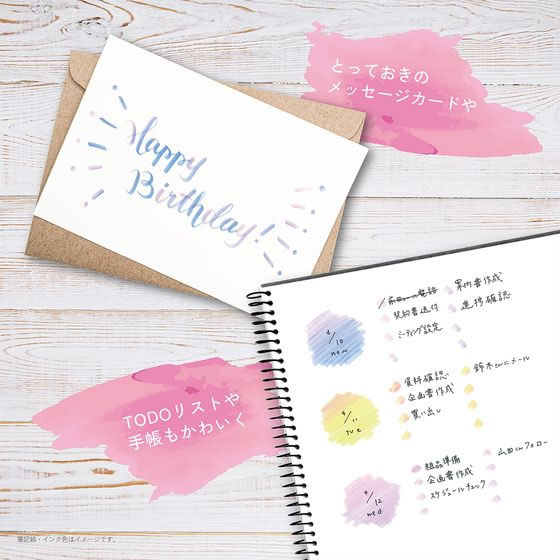 とっておきの
メッセージカードや
Happy
Birthday!
4/10
mon
契約書送付
ミーティング設定
案内書作成
進捗確認
4/11
tue
資料確認
企画書作成
買い出し
鈴木さんにメール
4/12
wed
粗品準備
企画書作成
スケジュールチェック
山田くんフォロー
TODOリストや
手帳もかわいく
筆記線・インク色はイメージです。